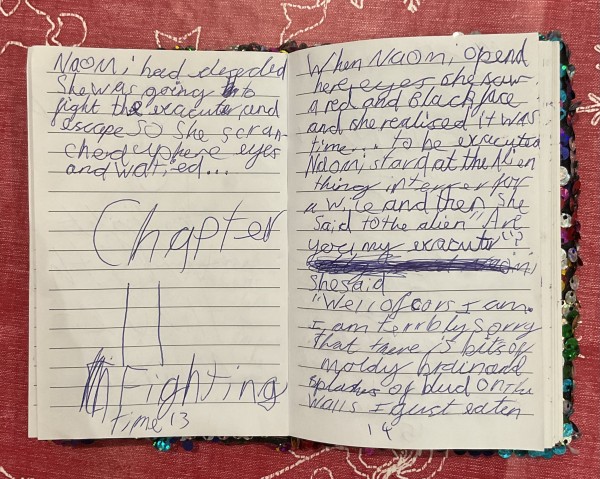 Naomi had deserded
She was going to
fight the exacuter and
escape so she scran-
ched up here eyes
and watied...
Chapter
11
Fighting
time 13
When Naomi opend
here eyes she saw
a red and Black face
and she realised it was
time... to be executed
Naomi stard at the Alien
thing in terrer for
a wile and then she
said to the alien "Are
you my exacuter"?
she said
"Well of cors I am.
I am terrbly sorry
that there is bits of
moldy brain and
splashes of blud on the
walls I gust eaten
14